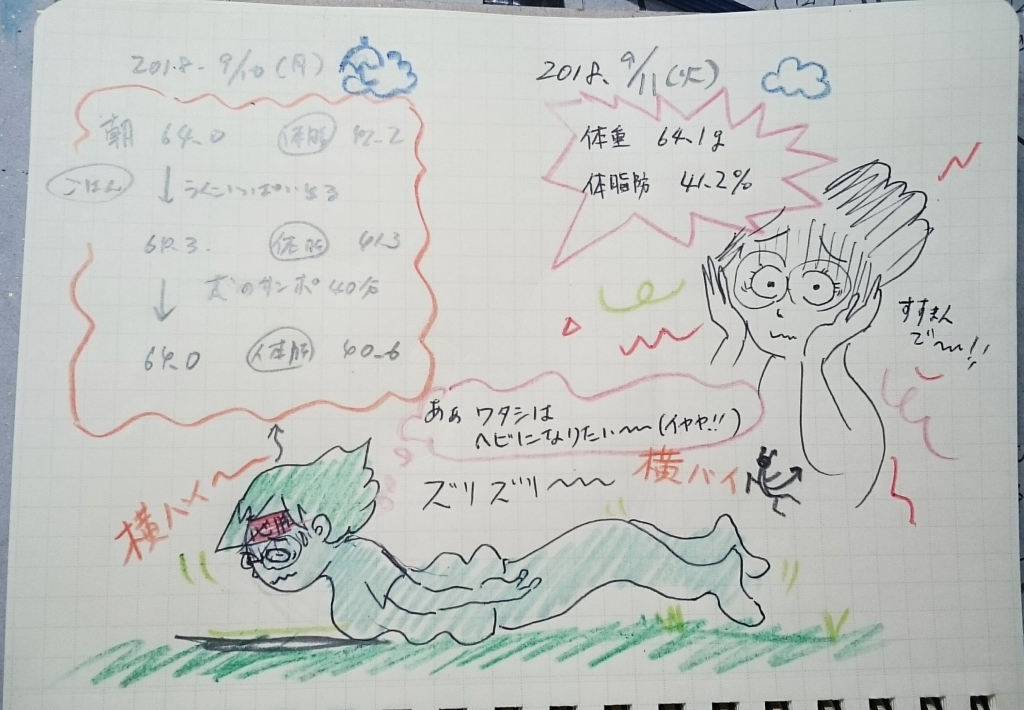 2018. 9/10 (月)
朝 64.0 体脂 42.2
ごはん
64.3. 体脂 41.3
犬のサンポ 40分
64.0 体脂 40.6
2018. 9/11 (火)
体重 64.1g
体脂肪 41.2%
すすまん
で〜〜!!
あぁ ワタシは
ヘビになりたい〜〜 (イヤヤ!!)
ズリズリ〜〜〜
横バイ〜
横バイ